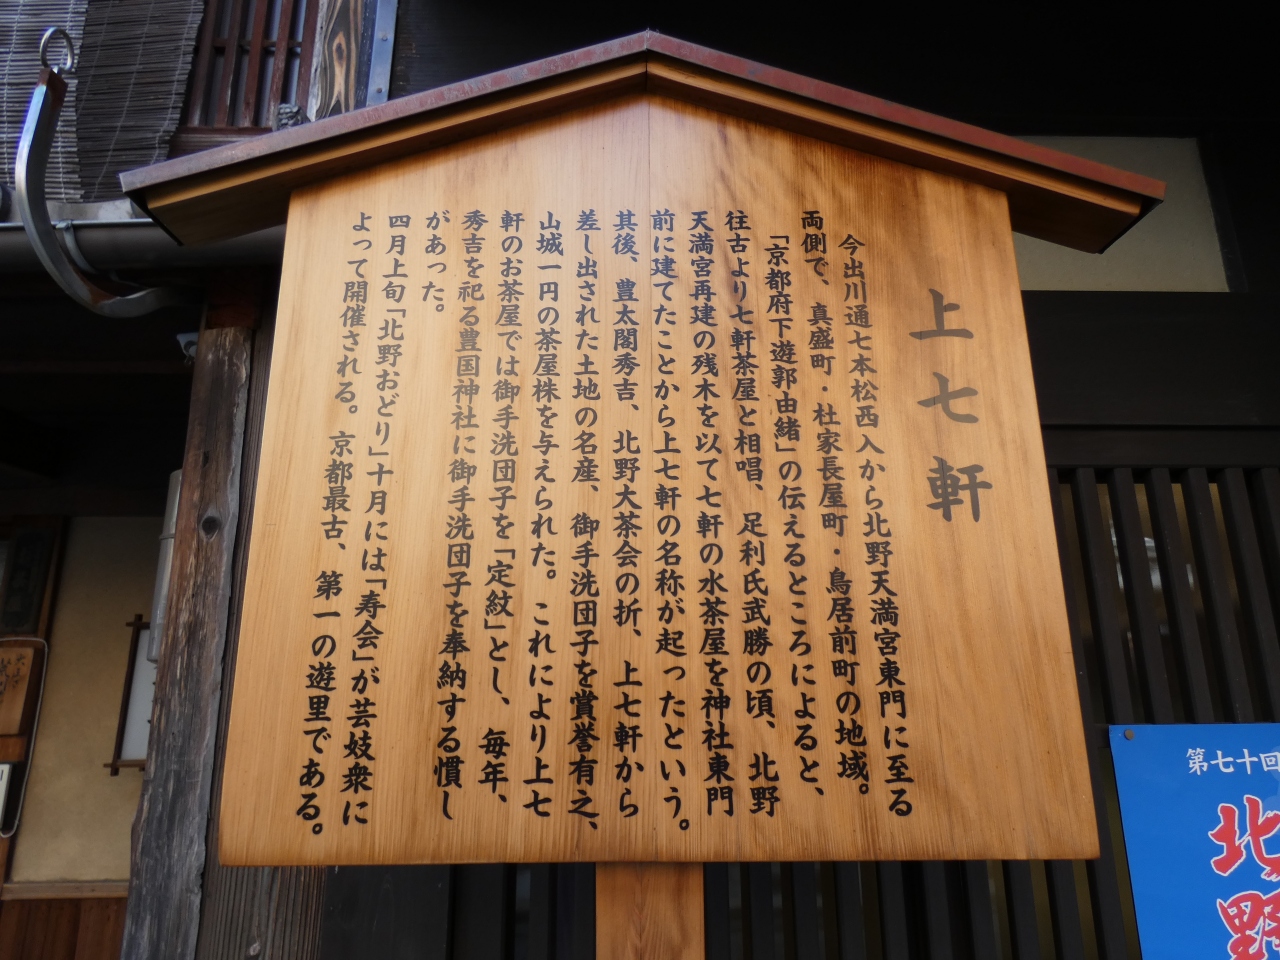 上七軒
今出川通七本松西入から北野天満宮東門に至る
両側で、真盛町・社家長屋町・鳥居前町の地域。
「京都府下遊郭由緒」の伝えるところによると、
往古より七軒茶屋と相唱、足利氏武勝の頃、北野
天満宮再建の残木を以て七軒の水茶屋を神社東門
前に建てたことから上七軒の名称が起ったという。
其後、豊太閤秀吉、北野大茶会の折、上七軒から
差し出された土地の名産、御手洗団子を賞誉有之、
山城一円の茶屋株を与えられた。これにより上七
軒のお茶屋では御手洗団子を「定紋」とし、毎年、
秀吉を祀る豊国神社に御手洗団子を奉納する慣し
があった。
四月上旬「北野おどり」十月には「寿会」が芸妓衆に
よって開催される。京都最古、第一の遊里である。
第七十回
北野